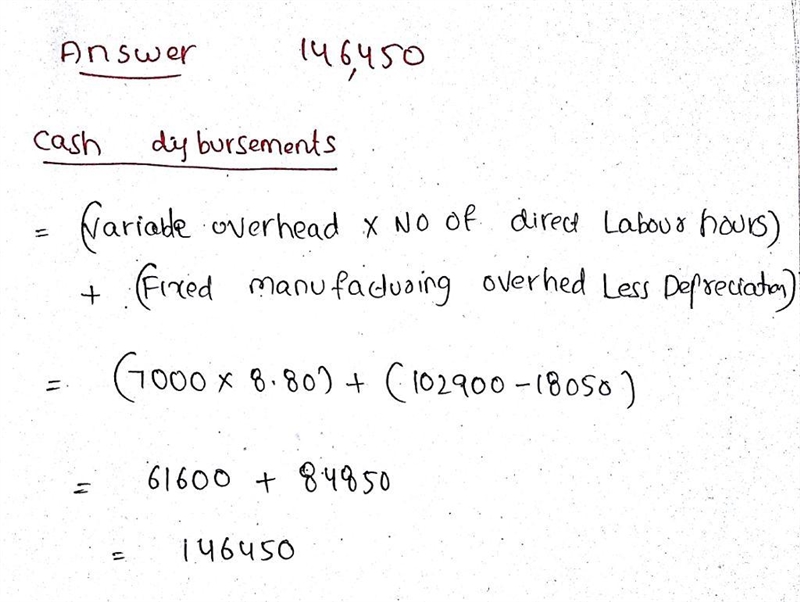 Answer 146,450
Cash dysbursements
= (Variable overhead x No of direct Labour hours)
+ (Fixed manufacturing overhed Less Depreciation)
= (7000 x 8.80) + (102900 - 18050)
= 61600 + 84850
= 146450